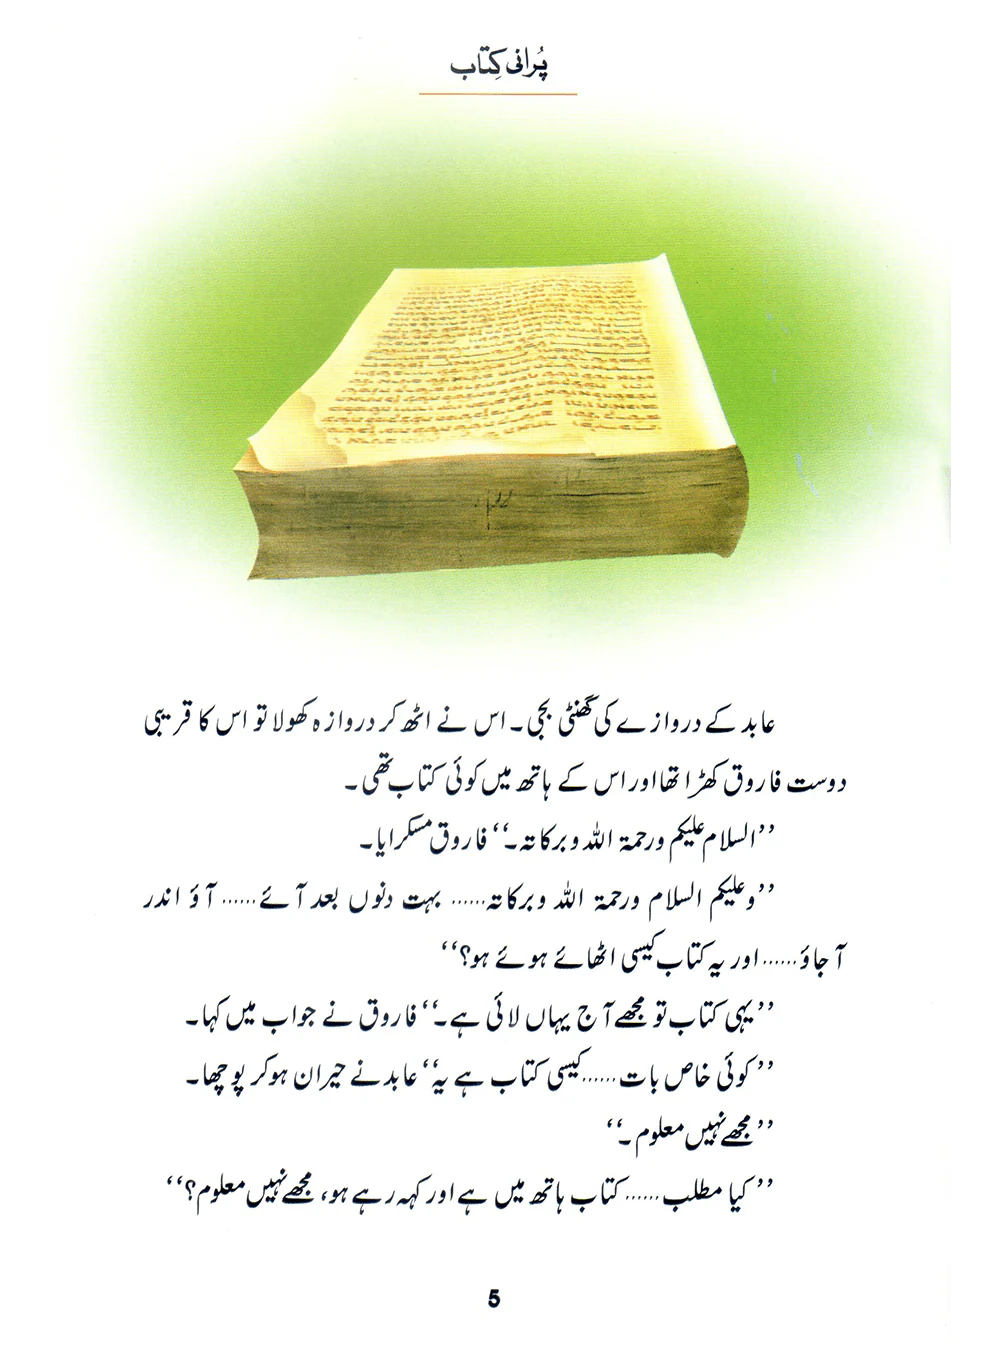 پُرانی کِتاب
عابد کے دروازے کی گھنٹی بجی۔ اس نے اٹھ کر دروازہ کھولا تو اس کا قریبی
دوست فاروق کھڑا تھا اور اس کے ہاتھ میں کوئی کتاب تھی۔
’’السلام علیکم ورحمۃ اللہ وبرکاتہ۔‘‘ فاروق مسکرایا۔
’’وعلیکم السلام ورحمۃ اللہ وبرکاتہ...... بہت دنوں بعد آئے...... آؤ اندر
آجاؤ...... اور یہ کتاب کیسی اٹھائے ہوئے ہو؟‘‘
’’یہی کتاب تو مجھے آج یہاں لائی ہے۔‘‘ فاروق نے جواب میں کہا۔
’’کوئی خاص بات......کیسی کتاب ہے یہ‘‘ عابد نے حیران ہوکر پوچھا۔
’’مجھے نہیں معلوم۔‘‘
’’کیا مطلب...... کتاب ہاتھ میں ہے اور کہہ رہے ہو، مجھے نہیں معلوم؟‘‘
5